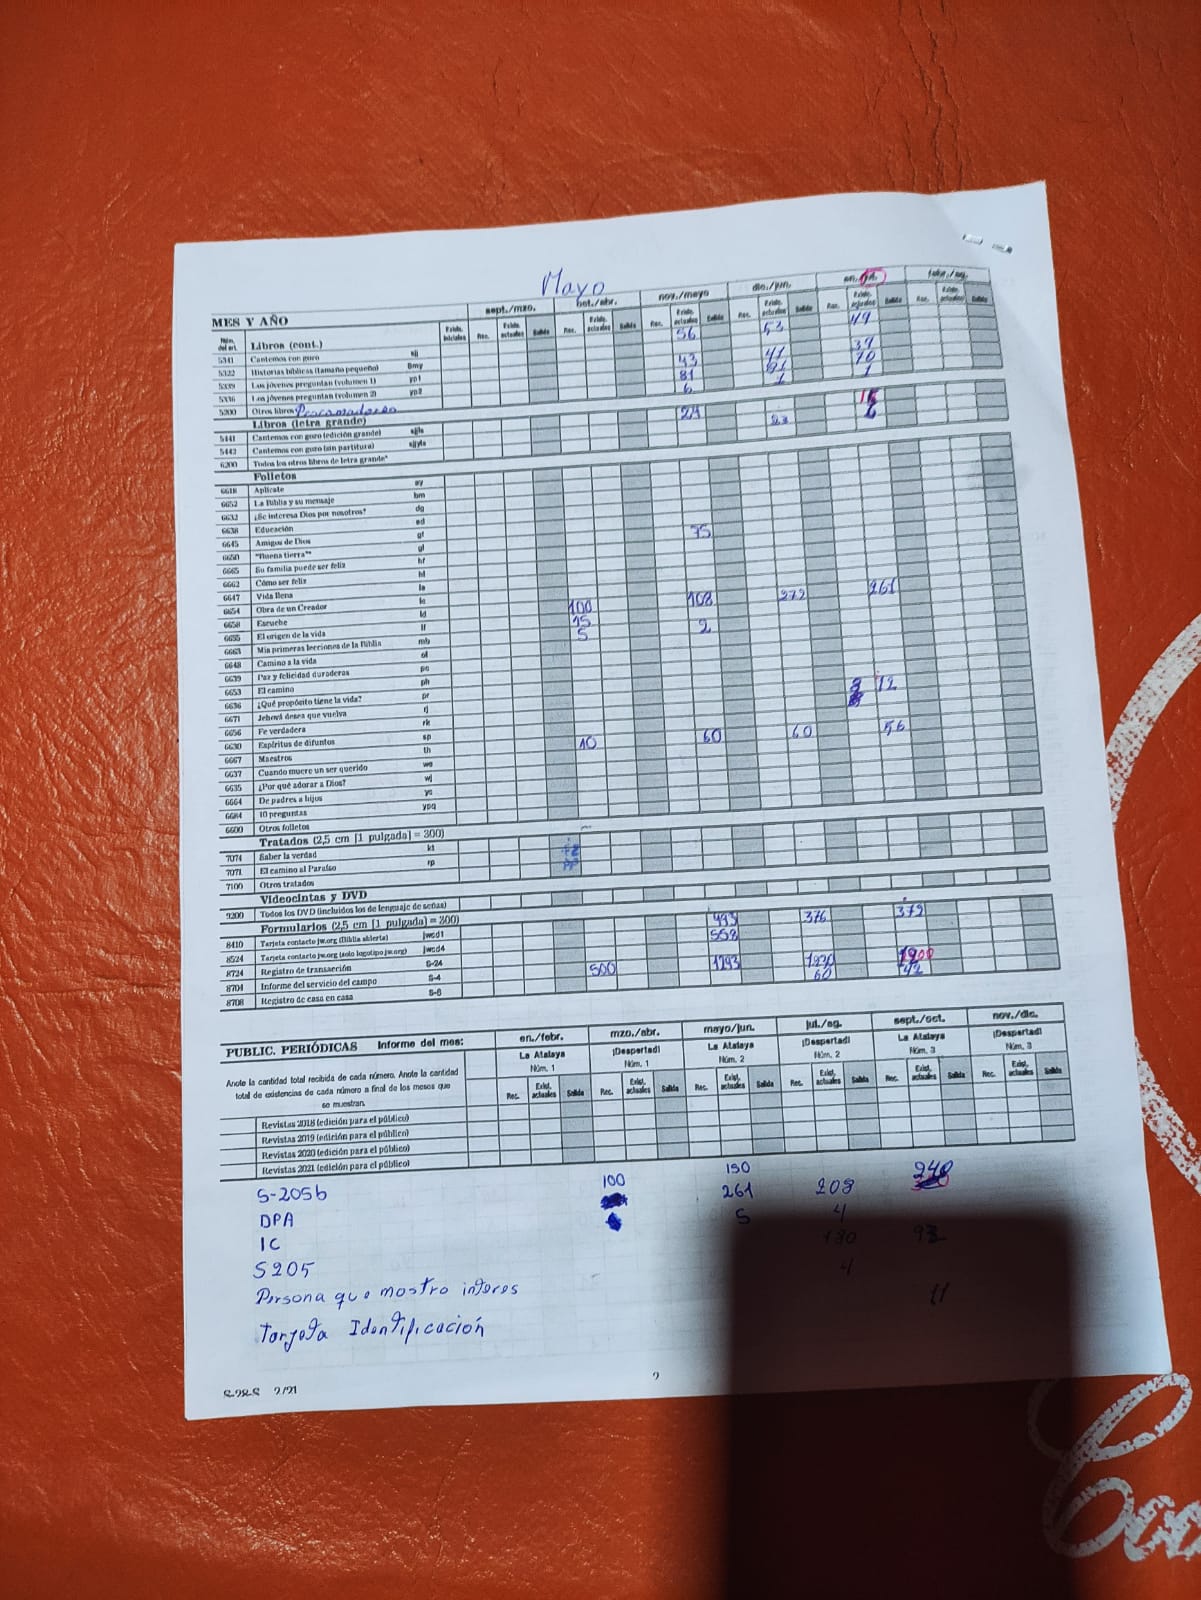 Mayo
MES Y AÑO sept./mzo. oct./abr. nov./mayo dic./jun. en./jul. febr./ag.
Núm. del art. Libros (cont.) Exist. iniciales Rec. Exist. actuales Salida Rec. Exist. actuales Salida Rec. Exist. actuales Salida Rec. Exist. actuales Salida Rec. Exist. actuales Salida Rec. Exist. actuales Salida
5341 Cantemos con gozo sjj 56 53 49
5322 Historias bíblicas (tamaño pequeño) Bmy 39
5339 Los jóvenes preguntan (volumen 1) yp1 43 41 70
5336 Los jóvenes preguntan (volumen 2) yp2 81 81 1
5200 Otros libros 6 1
Libros (letra grande) 24 23 6
5441 Cantemos con gozo (edición grande) sjjls
5442 Cantemos con gozo (sin partitura) sjjyls
6200 Todos los otros libros de letra grande*
Folletos
6618 Aplícate ay
6652 La Biblia y su mensaje bm
6632 ¿Se interesa Dios por nosotros? dg
6638 Educación ed
6645 Amigos de Dios gf 75
6650 "Buena tierra"* gl
6665 Su familia puede ser feliz hf
6662 Cómo ser feliz hl
6647 Vida llena la
6654 Obra de un Creador lc 100 108 272 261
6658 Escuche ld 15
6655 El origen de la vida lf 5 2
6663 Mis primeras lecciones de la Biblia mb
6648 Camino a la vida ol
6639 Paz y felicidad duraderas pc
6653 El camino ph 12
6636 ¿Qué propósito tiene la vida? pr
6671 Jehová desea que vuelva rj
6656 Fe verdadera rk
6630 Espíritus de difuntos sp 10 60 60 56
6667 Maestros th
6637 Cuando muere un ser querido we
6635 ¿Por qué adorar a Dios? wj
6664 De padres a hijos yc
6684 10 preguntas ypq
6600 Otros folletos
Tratados (2,5 cm [1 pulgada] = 300)
7074 Saber la verdad kt
7071 El camino al Paraíso rp
7100 Otros tratados
Videocintas y DVD
9200 Todos los DVD (incluidos los de lenguaje de señas)
Formularios (2,5 cm [1 pulgada] = 300) 493 376 379
8410 Tarjeta contacto jw.org (Biblia abierta) jwcd1 558
8524 Tarjeta contacto jw.org (solo logotipo jw.org) jwcd4
8724 Registro de transacción S-24 500 1293 1230 1200
8704 Informe del servicio del campo S-4 60 42
8708 Registro de casa en casa S-8
PUBLIC. PERIÓDICAS Informe del mes: en./febr. mzo./abr. mayo/jun. jul./ag. sept./oct. nov./dic.
La Atalaya ¡Despertad! La Atalaya ¡Despertad! La Atalaya ¡Despertad!
Núm. 1 Núm. 1 Núm. 2 Núm. 2 Núm. 3 Núm. 3
Anote la cantidad total recibida de cada número. Anote la cantidad
total de existencias de cada número a final de los meses que
se muestran.
Rec. Exist. actuales Salida Rec. Exist. actuales Salida Rec. Exist. actuales Salida Rec. Exist. actuales Salida Rec. Exist. actuales Salida Rec. Exist. actuales Salida
Revistas 2018 (edición para el público)
Revistas 2019 (edición para el público)
Revistas 2020 (edición para el público)
Revistas 2021 (edición para el público)
S-205b 100 150 240
DPA 261 208
IC 5 4
S205 130
Persona que mostro interes 4
Tarjeta Identificación 11
S-28-S 2/21
2